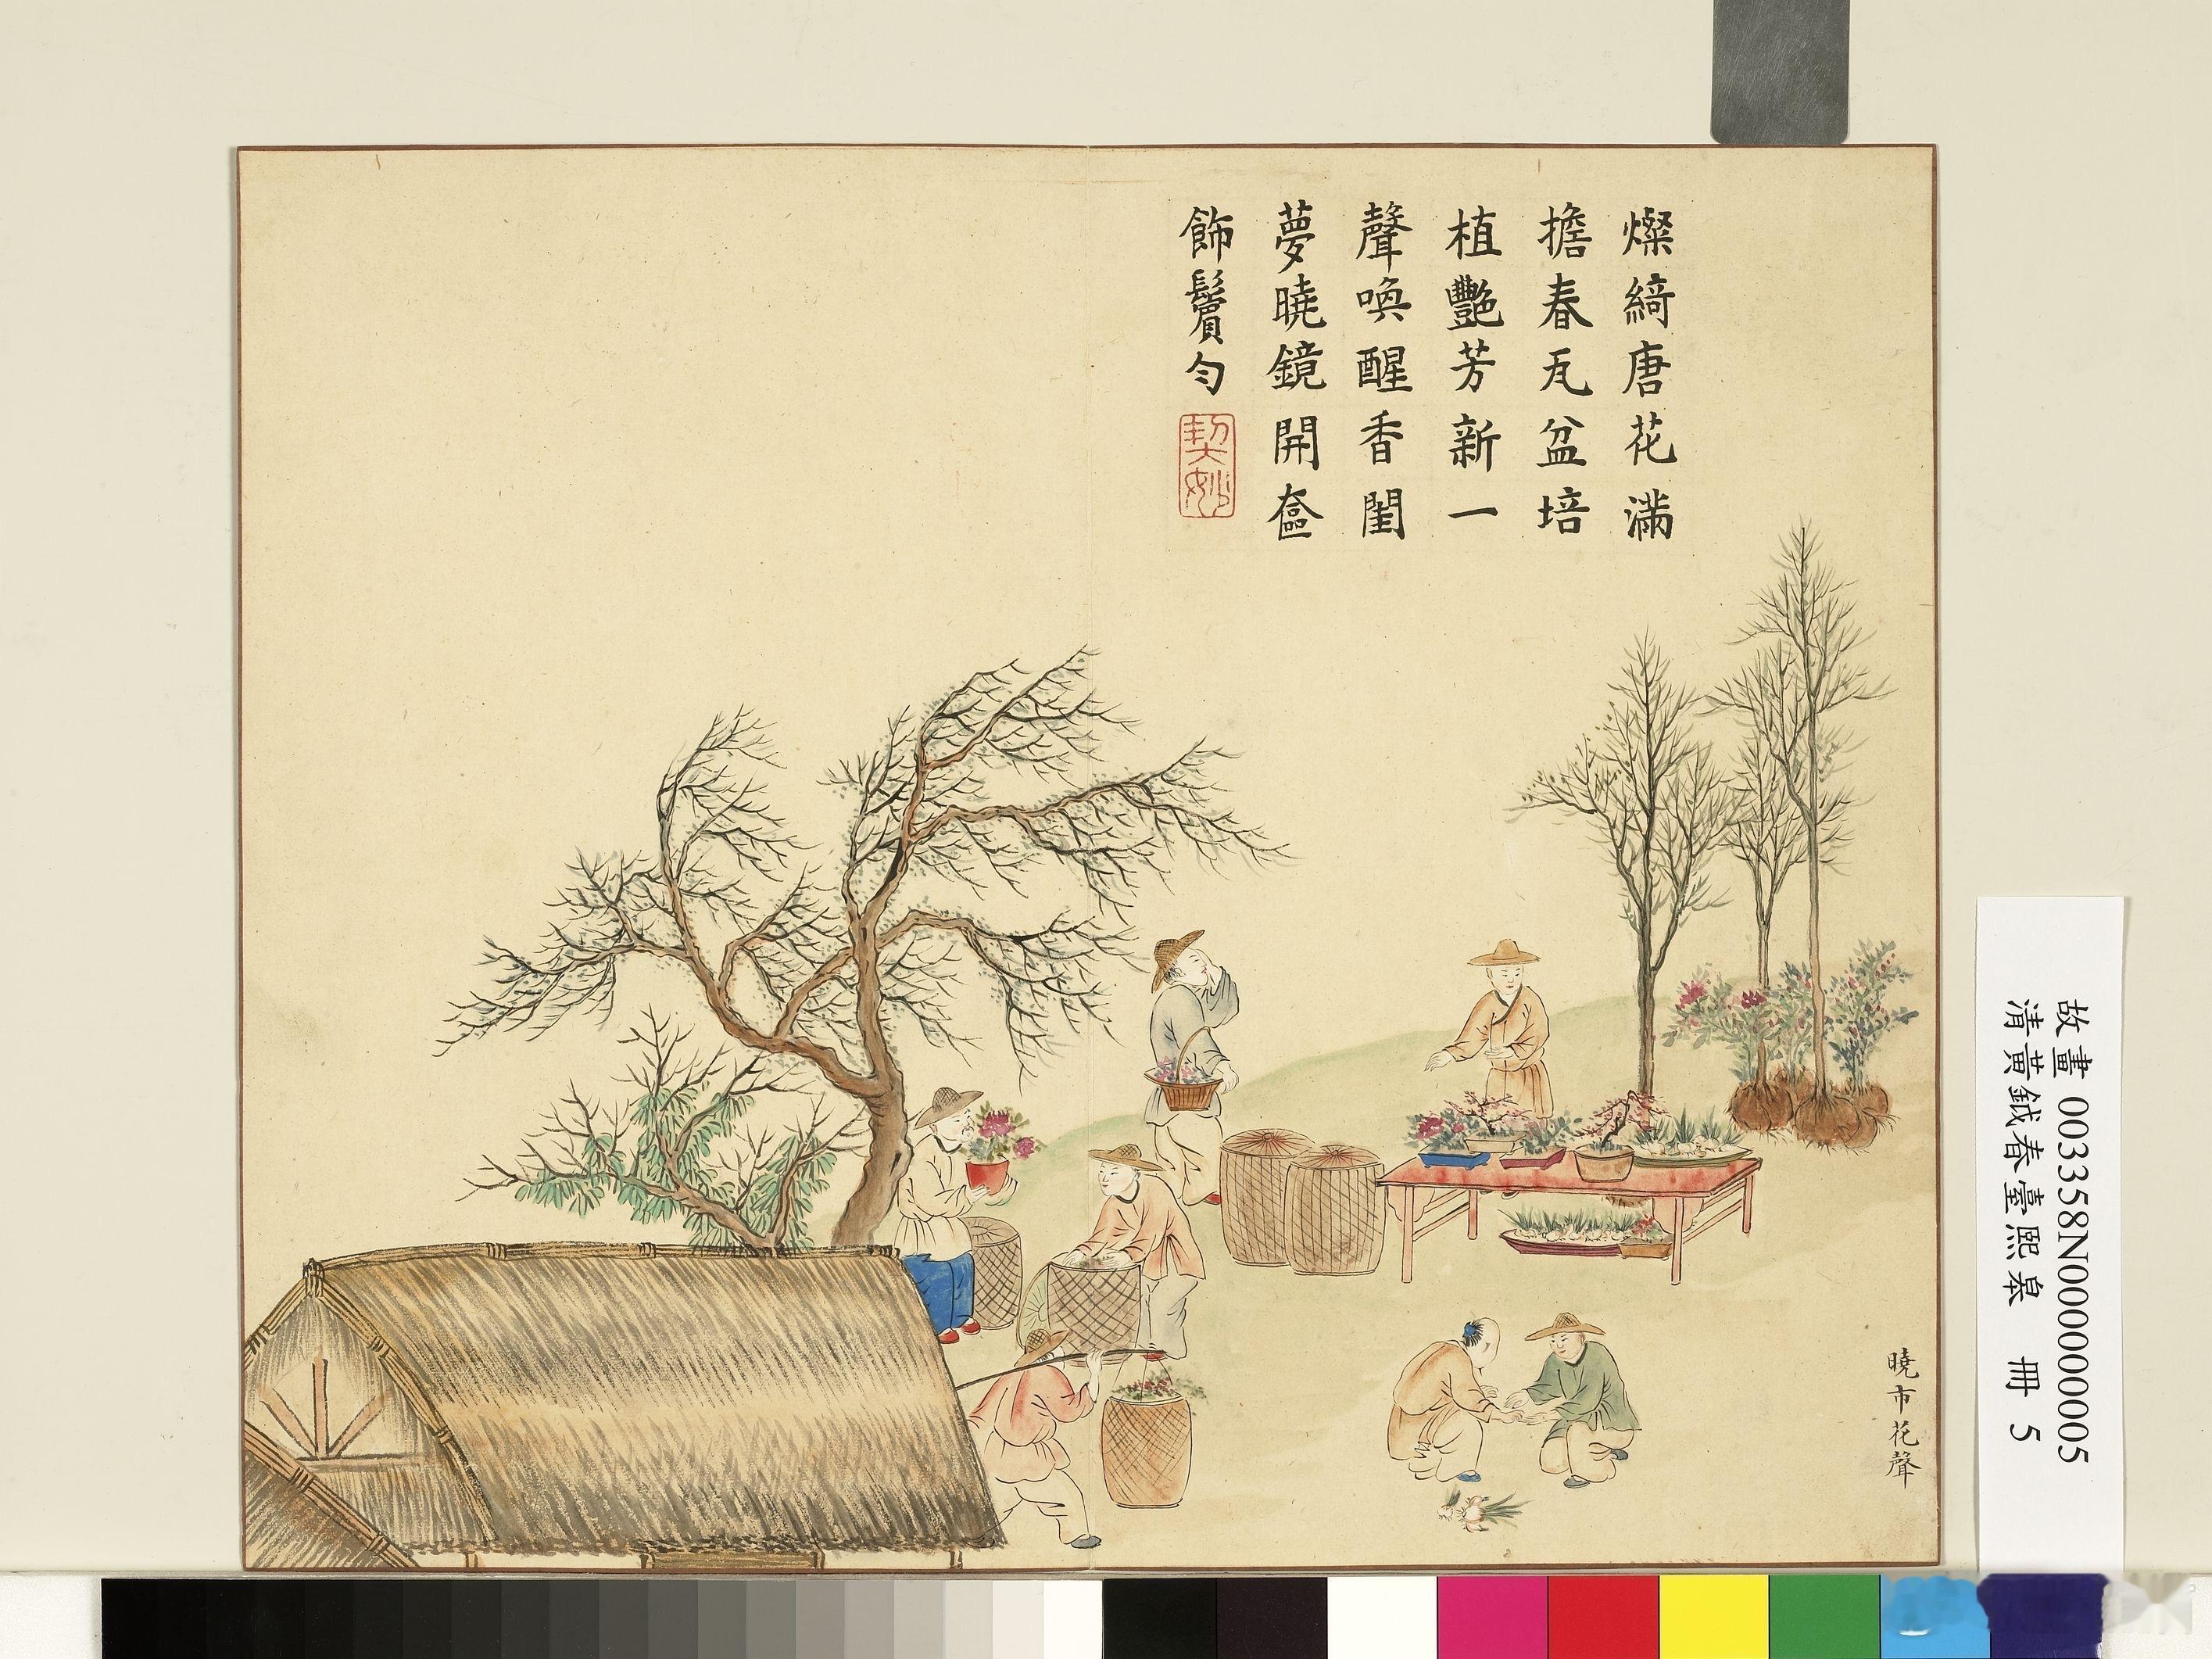 燦綺唐花滿
擔春瓦盆培
植艷芳新一
聲喚醒香閨
夢曉鏡開奩
飾鬢勻
契妙
曉市花聲
故畫 003358N000000005
清黃鉞春臺熙皋 冊 5